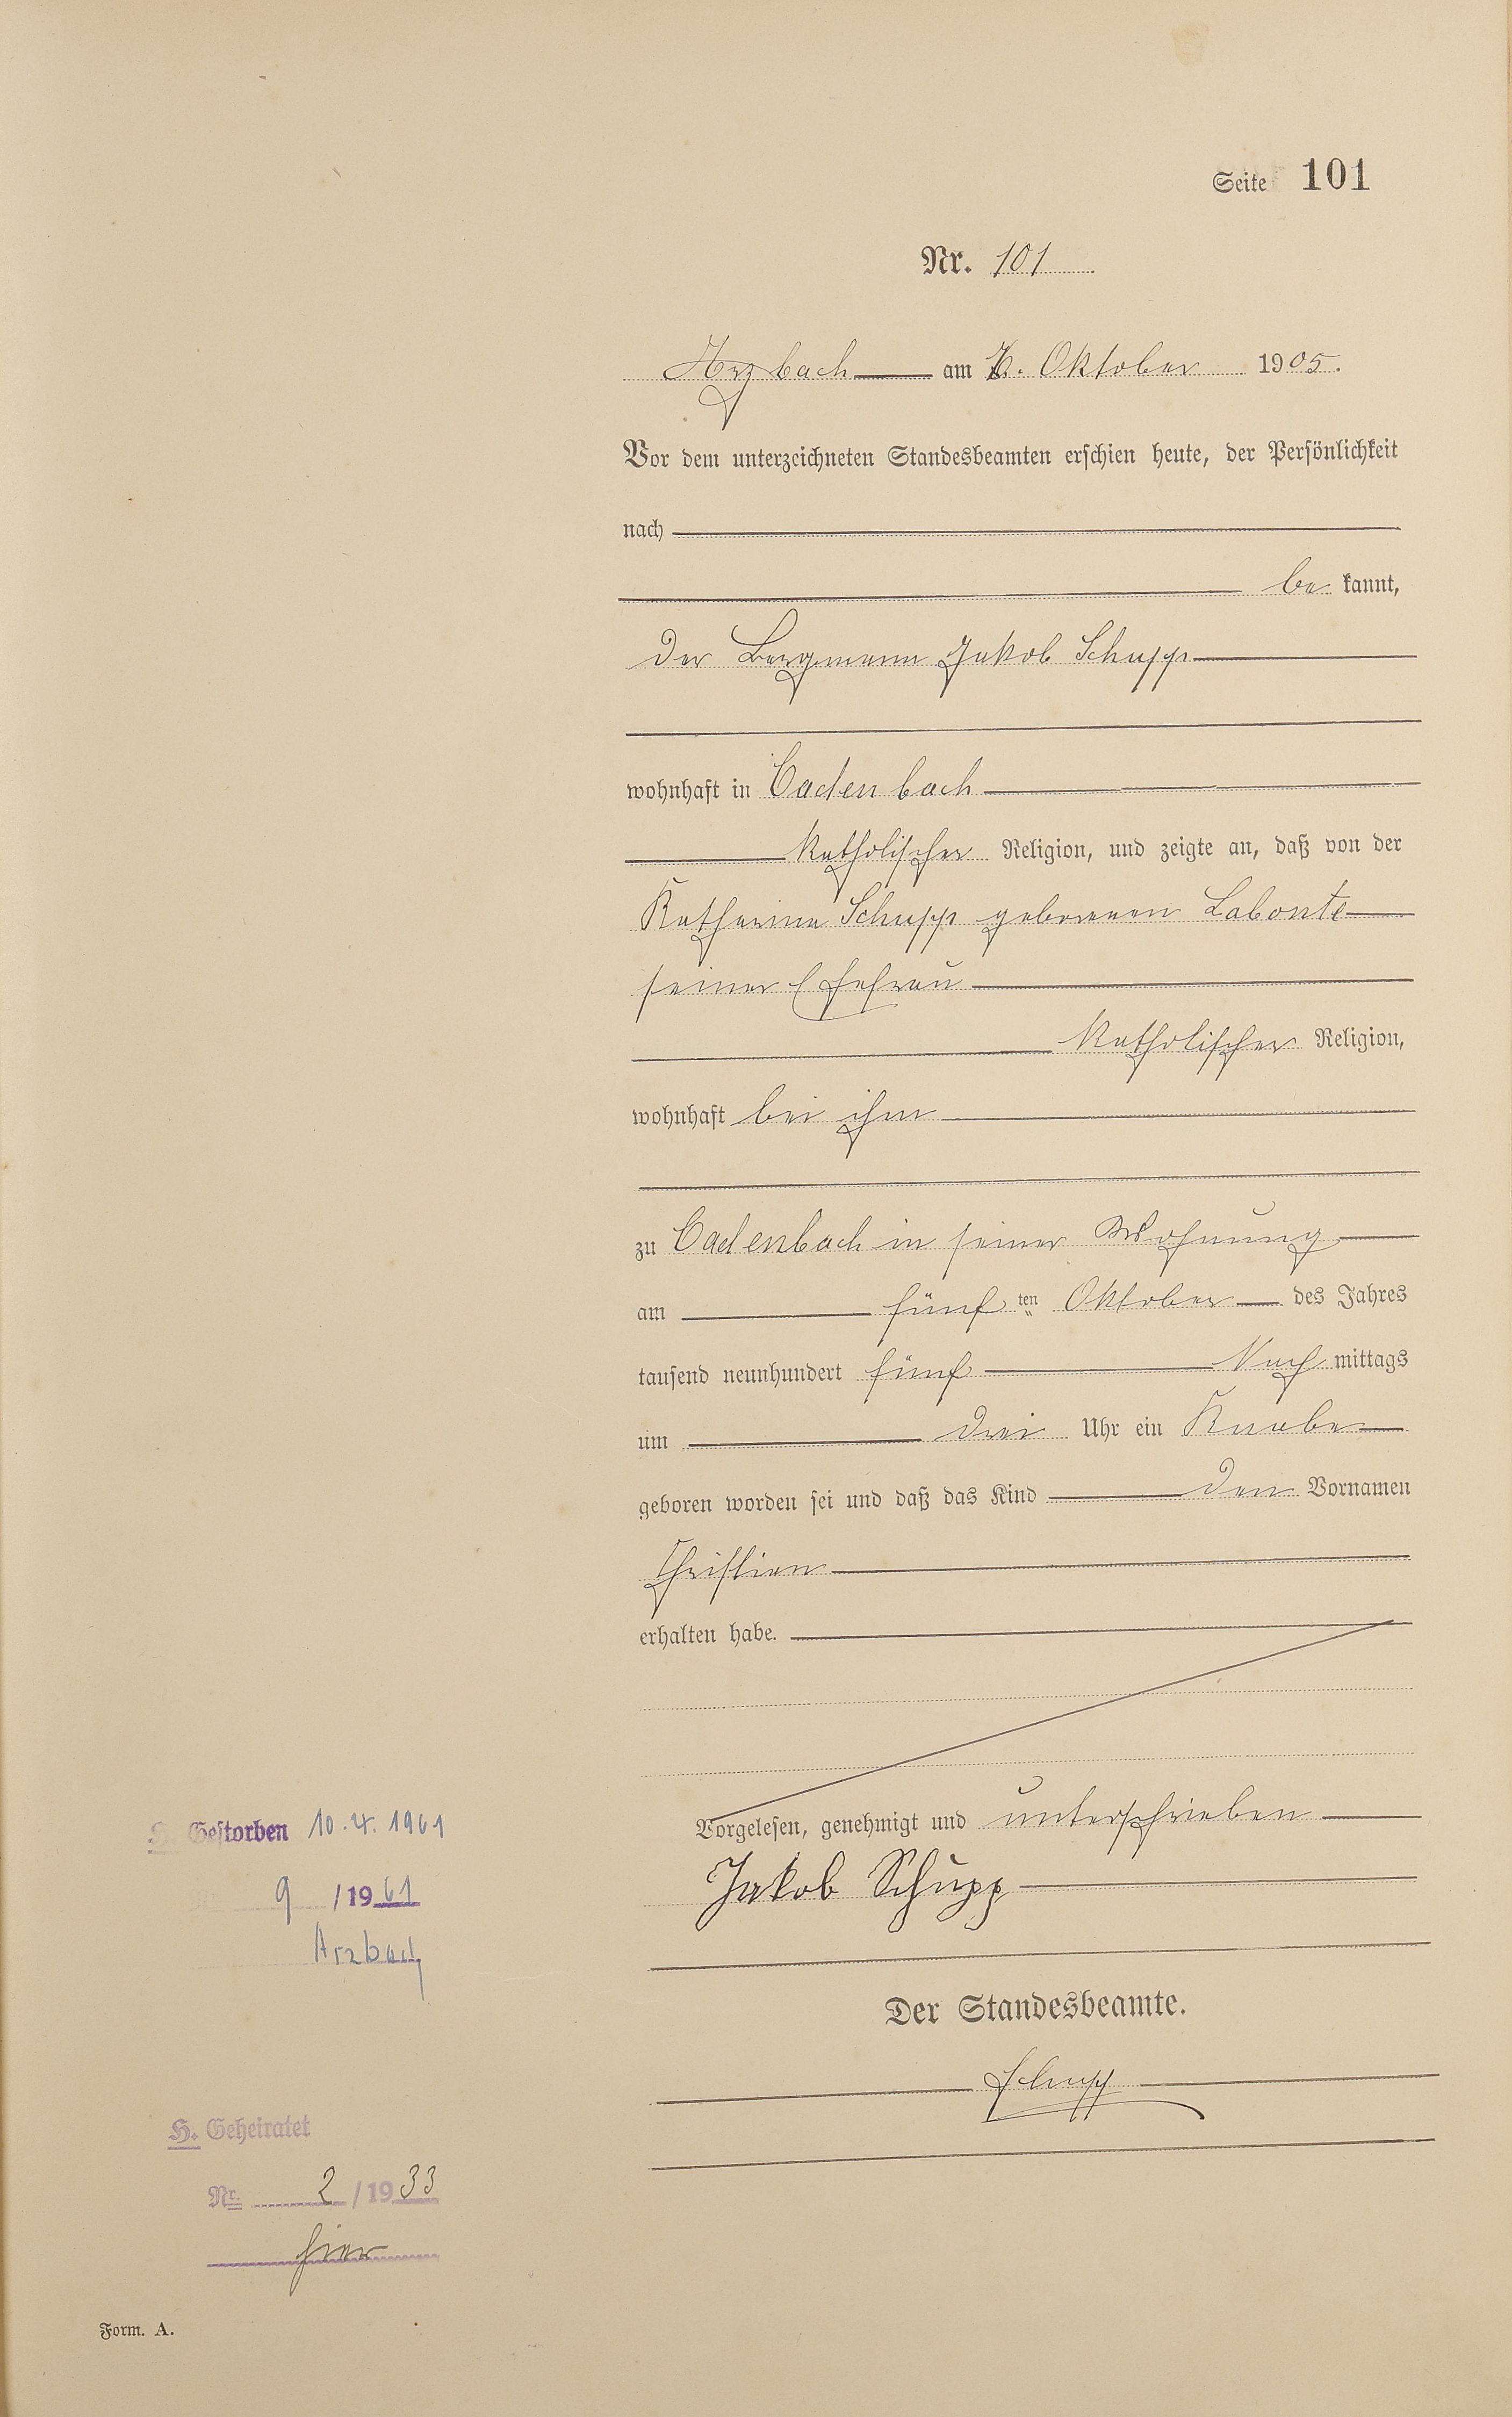 Seite 101
Nr. 101
Arzbach am Oktober 1905.
Vor dem unterzeichneten Standesbeamten erschien heute, der Persönlichkeit
nach
be kannt,
der Bergmann Jakob Schupp
wohnhaft in Cadenbach
katholischer Religion, und zeigte an, daß von der
Katharina Schupp geborenen Labonte
seiner Ehefrau
katholischer Religion,
wohnhaft bei ihm
zu Cadenbach in seiner Wohnung
am fünf ten Oktober des Jahres
tausend neunhundert fünf Nach mittags
um drei Uhr ein Knabe
geboren worden sei und daß das Kind den Vornamen
Christian
erhalten habe.
Vorgelesen, genehmigt und unterschrieben
Jakob Schupp
Der Standesbeamte.
Schupp
Gestorben 10.4.1961
9 /1961
Arzbach
H. Geheiratet
Nr. 2 /1933
hier
Form. A.